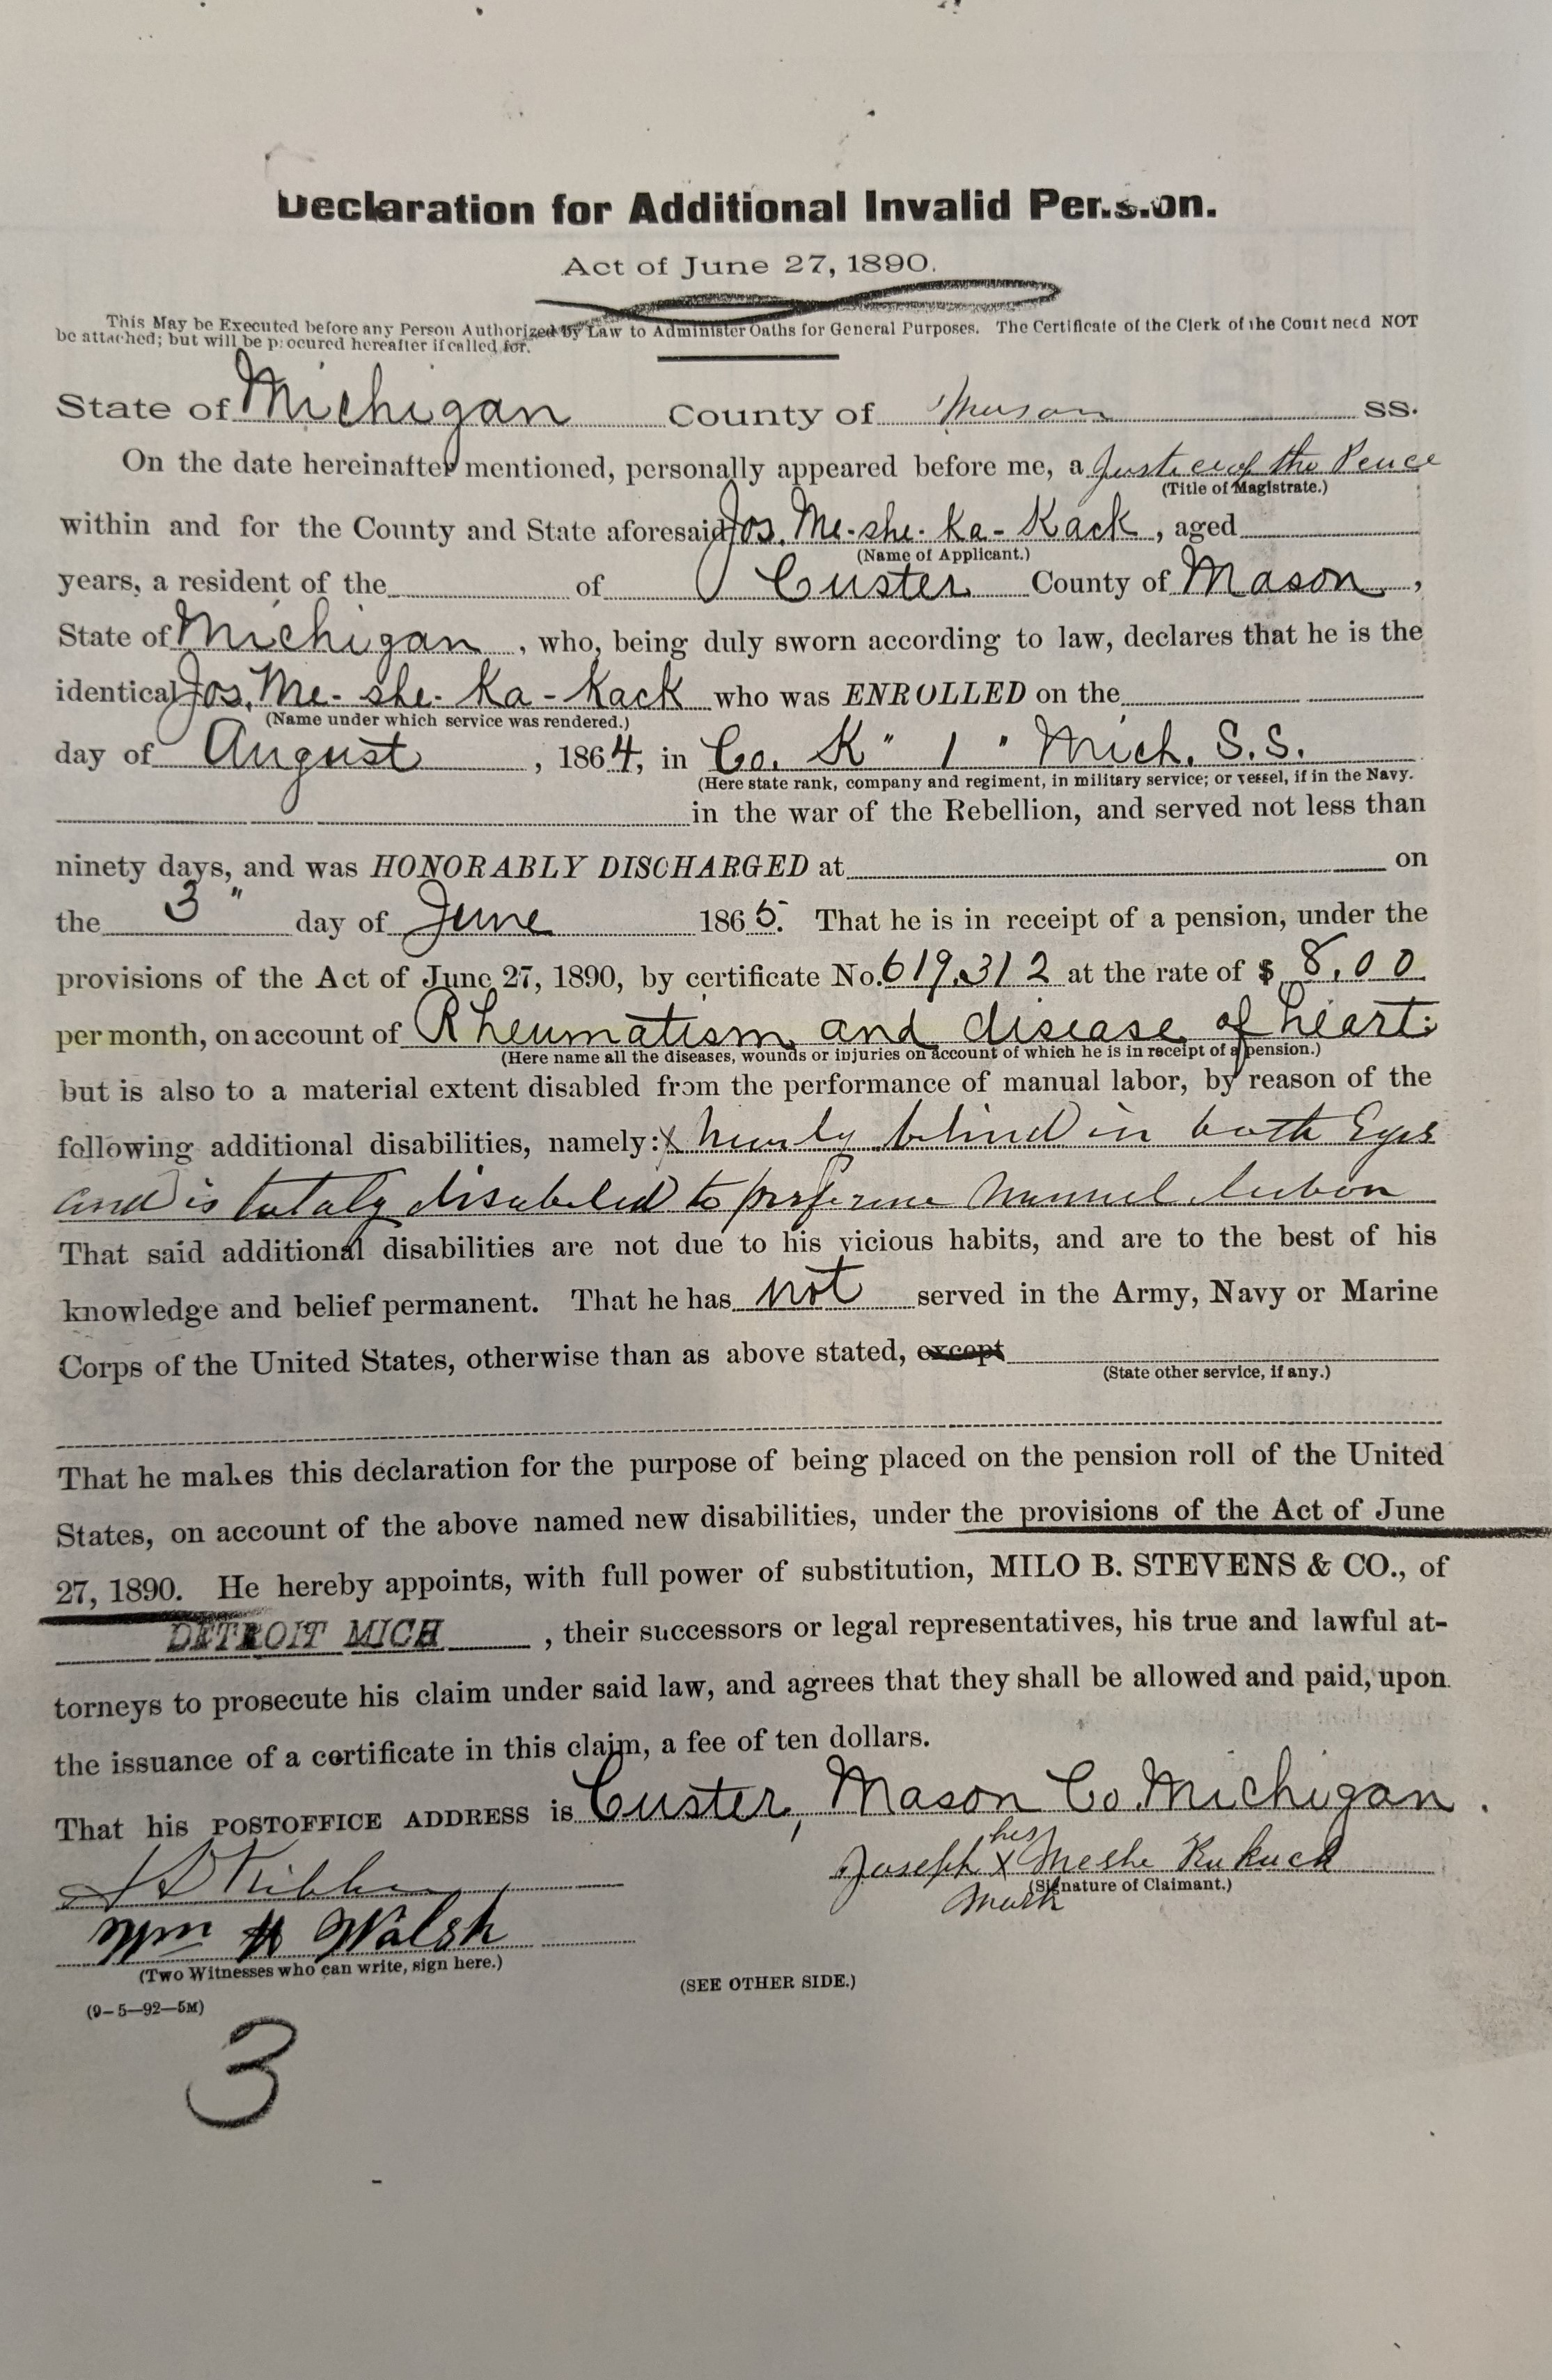 Declaration for Additional Invalid Pension.
Act of June 27, 1890.
This May be Executed before any Person Authorized by Law to Administer Oaths for General Purposes. The Certificate of the Clerk of the Court need NOT
be attached; but will be procured hereafter if called for.
State of Michigan County of Mason SS.
On the date hereinafter mentioned, personally appeared before me, a Justice of the Peace
(Title of Magistrate.)
within and for the County and State aforesaid Jos. Me-she-ka-Kack, aged
(Name of Applicant.)
years, a resident of the of Custer County of Mason,
State of Michigan, who, being duly sworn according to law, declares that he is the
identical Jos. Me-she-Ka-Kack who was ENROLLED on the
(Name under which service was rendered.)
day of August, 1864, in Co. K" 1" Mich. S.S.
(Here state rank, company and regiment, in military service; or vessel, if in the Navy.
in the war of the Rebellion, and served not less than
ninety days, and was HONORABLY DISCHARGED at on
the 3" day of June 1865. That he is in receipt of a pension, under the
provisions of the Act of June 27, 1890, by certificate No. 619.312 at the rate of $ 8.00
per month, on account of Rheumatism and disease of heart:
(Here name all the diseases, wounds or injuries on account of which he is in receipt of a pension.)
but is also to a material extent disabled from the performance of manual labor, by reason of the
following additional disabilities, namely: x nearly blind in both Eyes
and is totaly disabeled to preforme manuel labor
That said additional disabilities are not due to his vicious habits, and are to the best of his
knowledge and belief permanent. That he has not served in the Army, Navy or Marine
Corps of the United States, otherwise than as above stated, except
(State other service, if any.)
That he makes this declaration for the purpose of being placed on the pension roll of the United
States, on account of the above named new disabilities, under the provisions of the Act of June
27, 1890. He hereby appoints, with full power of substitution, MILO B. STEVENS & CO., of
DETROIT MICH, their successors or legal representatives, his true and lawful at-
torneys to prosecute his claim under said law, and agrees that they shall be allowed and paid, upon
the issuance of a certificate in this claim, a fee of ten dollars.
That his POSTOFFICE ADDRESS is Custer, Mason Co. Michigan.
his
Joseph X Meshe Kakack
(Signature of Claimant.)
mark
Wm H Walsh
(Two Witnesses who can write, sign here.)
(SEE OTHER SIDE.)
(9-5-92-5M)
3